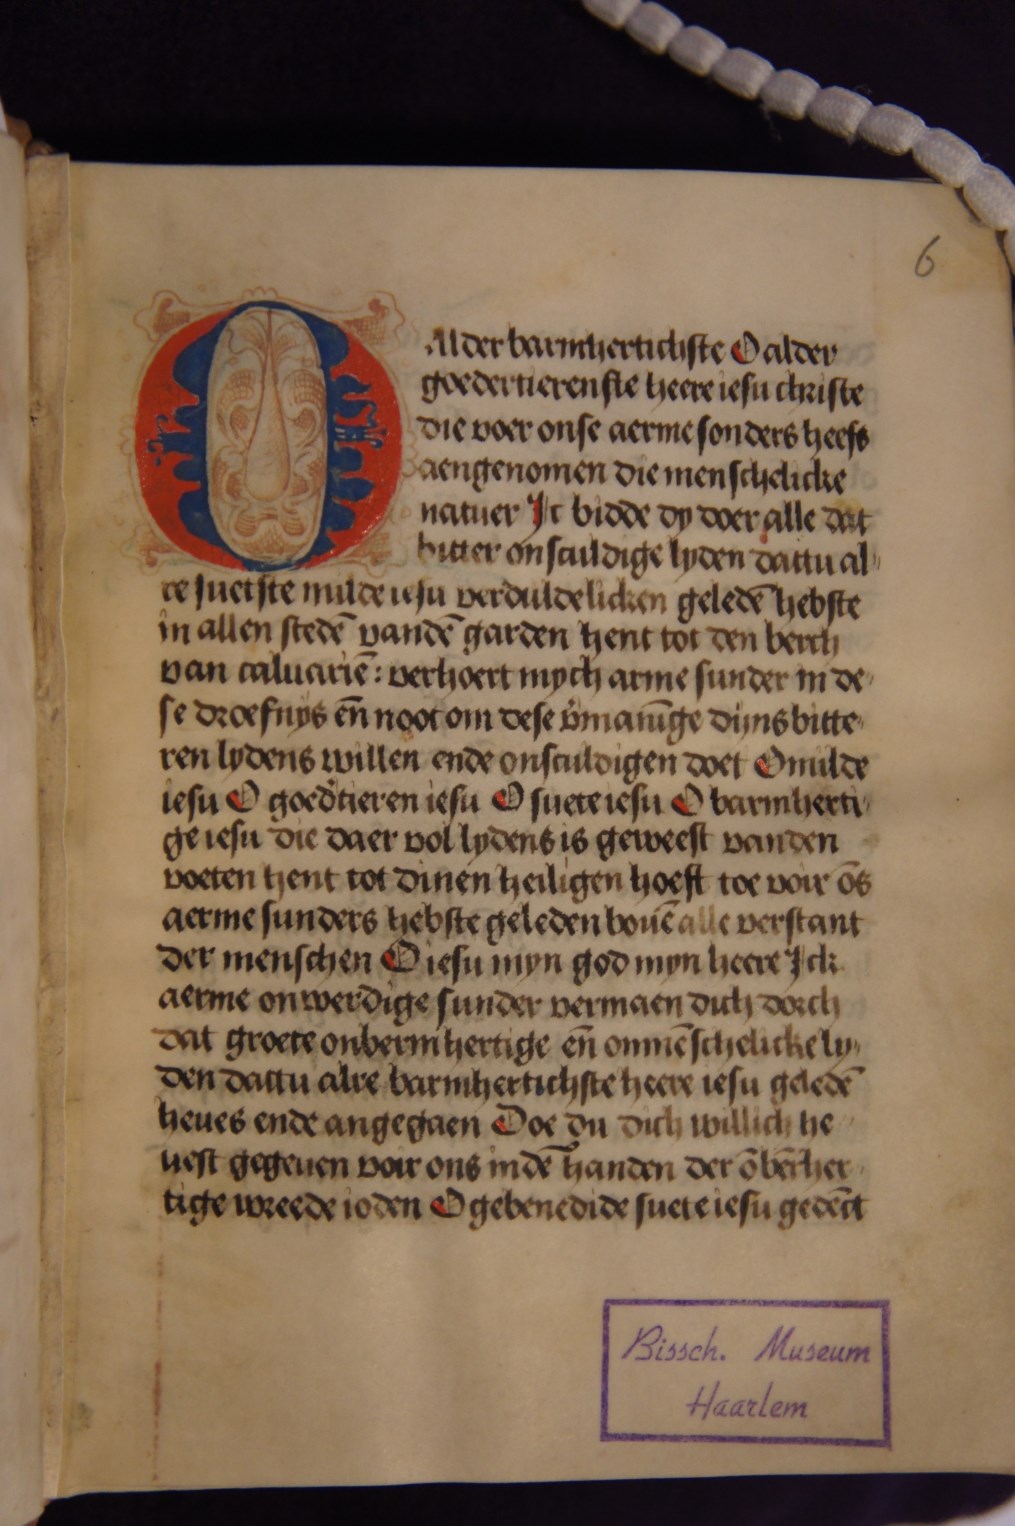 6
O Alder barmhertichste O alder
goedertierenste heere iesu christe
die voer onse aerme sonders heefs
aengenomen die menschelicke
natuer Jc bidde dy doer alle dat
bitter onsculdige lyden dattu al
re suetste milde iesu verduldelicken geledē hebste
in allen stedē vandē garden hent tot den berch
van caluariē : verhoert mych arme sunder in de
se droefnys eñ noot om dese v̓maninge dijns bitte
ren lydens willen ende onsculdigen doet O milde
iesu O goed̓tieren iesu O suete iesu O barmherti
ge iesu die daer vol lydens is geweest vanden
voeten hent tot dinen heiligen hoeft toe voir ōs
aerme sunders hebste geleden bouē alle verstant
der menschen O iesu myn god myn heere Jck
aerme onwerdige sunder vermaen dich dorch
dat groete onbermhertige eñ onmēschelicke ly
den dattu alre barmhertichste heere iesu geledē
heues ende angegaen Doe du dich willich he
uest gegeuen voir ons indē handen der ōbērher
tige wreede ioden O gebenedide suete iesu gedēct
Bissch. Museum
Haarlem